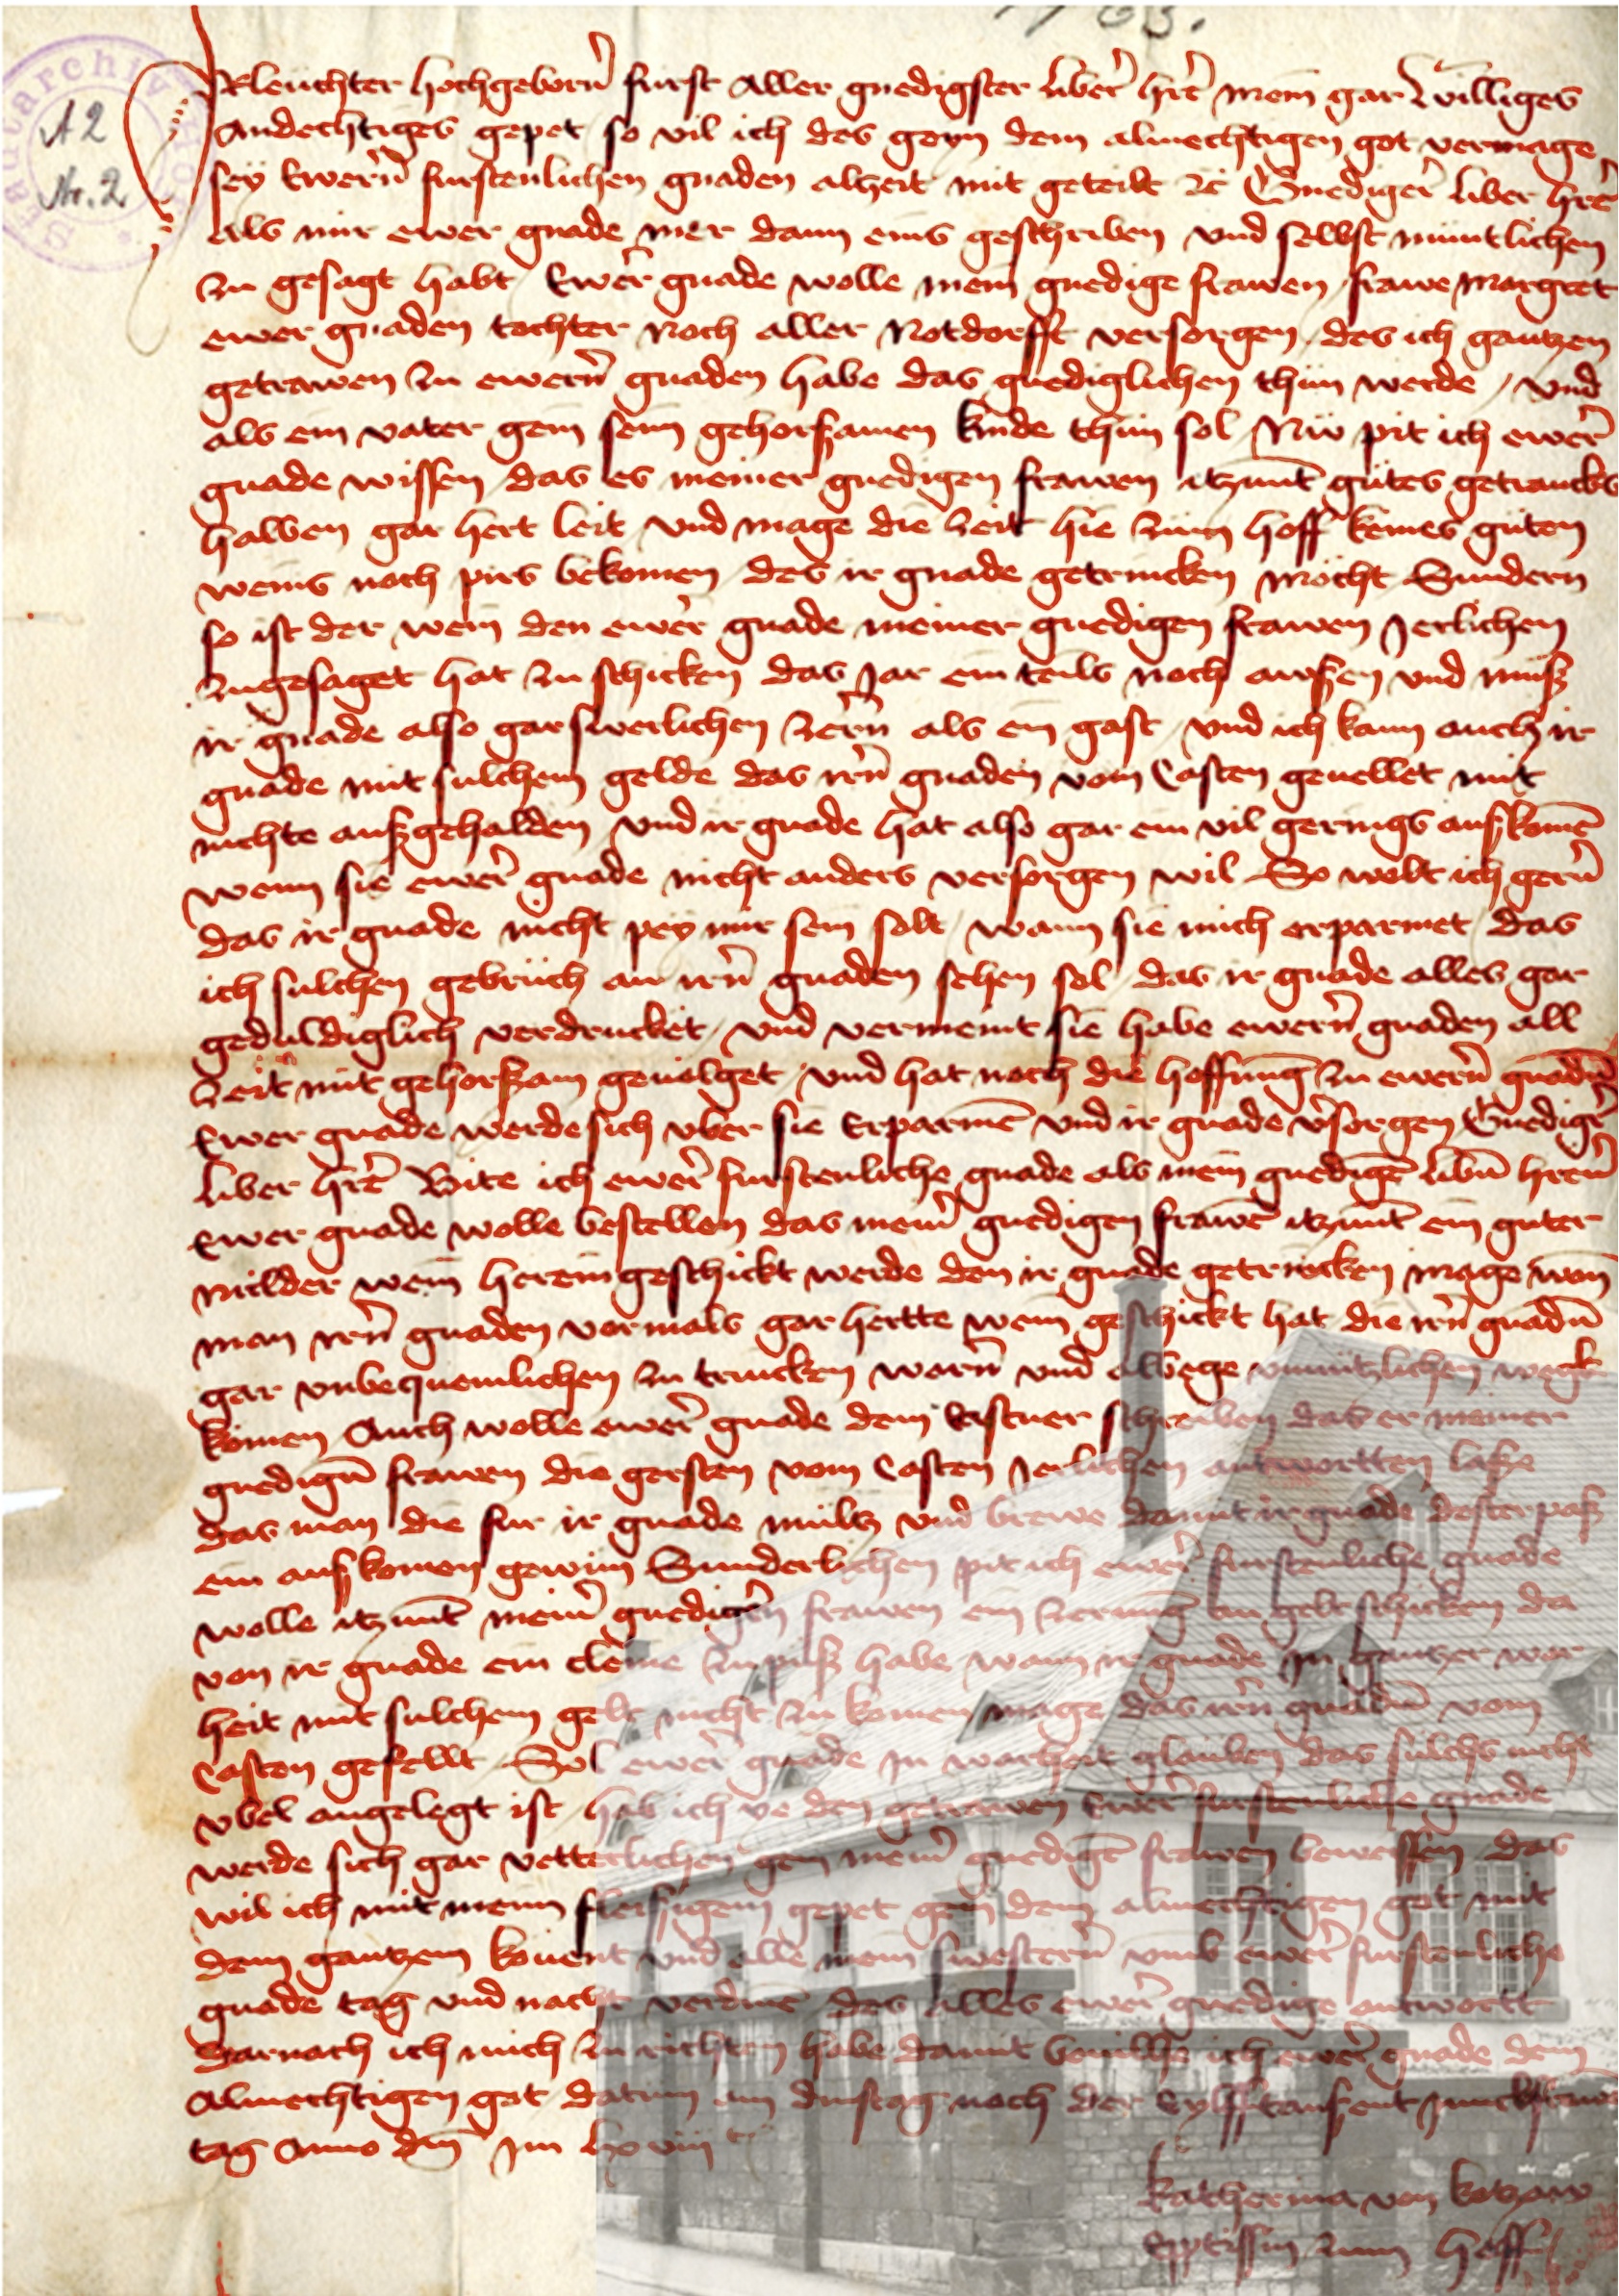 1463.
Stadtarchiv Hof
A 2
Nr. 2
Irleuchter hochgeborn̄ furst Aller gnedigster liber̄ hr̄e mein gar williges
Andechtiges gepet so vil ich des geyn dem almechtigen got vermage
sey Ewern̄ furstenlichen gnaden alzeit mit geteilt zc Gnediger̄ liber hr̄e
als mir ewer gnade mer dann eins geschriben vnd selbst müntlichen
zu gesagt habt Ewer̄ gnade wolle mein gnedige frawen frawe Margret
ewer gnaden tochter noch aller Notdorfft versorgen des ich gantzen
getrawen zu ewern̄ gnaden habe das gnediglichen thün werde / vnd
als ein vater gein seim gehorszamen kinde thün sol Nw pit ich ewer̄
gnade wissen das es meiner gnedigen frawen itzunt gütes getrancks
halben gar hert leit vnd mage die zeit hie zum hoff keines güten
weins noch pirs bekomen des ir gnade getrincken mocht Sundern
so ist der wein den ewer̄ gnade meiner gnedigen frawen Jerlichen
zugesaget hat zu schicken das Jar ein teils noch awszen vnd müsz
ir gnade also gar swerlichen zern̄ als ein gast vnd ich kann auch ir
gnade mit sulchem gelde das irn̄ gnaden vom Casten geuellet mit
nichte auszgehalden vnd ir gnade hat also gar ein vil gerings auszkomē
wenn sie ewer̄ gnade nicht anders versorgen wil So wolt ich gern̄
das ir gnade nicht pey mir sein solt wann sie mich erparmet das
ich sulchen gebrüch an irn̄ gnaden sehen sol das ir gnade alles gar
geduldiglich verdrucket vnd vermeint sie habe ewern̄ gnaden all
zeit mit gehorszam geuolget vnd hat noch die hoffnung zu ewern̄ gnadn̄
Ewer gnade werde sich vber sie Erparmē vnd ir gnade v̄sorgen Gnedigr̄
liber hr̄e Bite ich ewer̄ furstenliche gnade als mein gnedigē libn̄ hren̄
Ewer gnade wolle bestellen das mein̄ gnedigen frawē itzunt ein guter
milder wein hereingeschickt werde den ir gnade getrincken mage wan
man irn̄ gnaden vormals gar hertte wein geschickt hat die irn̄ gnadn̄
gar vnbequemlichen zu trincken warn̄ vnd albege vnnützlichen wegk
komen Auch wolle ewer̄ gnade dem Castner schreiben das er meiner
gnedign̄ frawen die gersten vom Casten Jerlichen antwortten lasze
das man die fur ir gnade mültz vnd brewe damit ir gnade dester pasz
ein auszkomen gewinn Sunderlichen pit ich ewer̄ furstenliche gnade
wolle itzunt mein̄ gnedigen frawen ein zerung an gelt schicken da
von ir gnade ein cleine zupusz habe wann ir gnade In gantzer war
heit mit sulchem gelt nicht zu komen mage das irn̄ gnadn̄ vom
Casten gefellt Sol ewer̄ gnade in warheit glauben das sulchs nicht
vbel angelegt ist hab ich ye den getrawen Ewer̄ furstenliche gnade
werde sich gar vetterlichen gen mein̄ gnedigē frawen beweissen das
wil ich mit meim fleiszigem gepet gen dem almechtigen got mit
dem gantzem Kouent vnd alle mein swestern̄ vmb ewer̄ furstenliche
gnade tag vnd nacht verdinē des alles ewer̄ gnedige antwortt
darnach ich mich zu richten habe damit beuilhe ich ewer̄ gnade dem
Almechtigen got datum am dinstag noch der Eylfftauszent Junckfrawē
tag Anno dm̄ Im lxviij
Katherina von Kotzaw
Epptissin zum Hoff